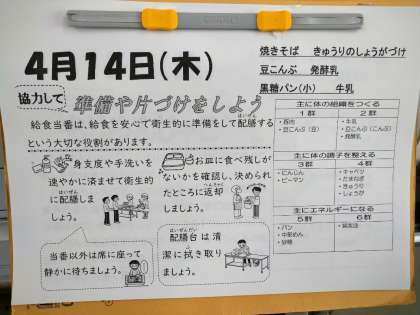 4月14日(木)
焼きそば　きゅうりのしょうがづけ
豆こんぶ　発酵乳
黒糖パン(小)　牛乳
協力して 準備や片づけをしよう
給食当番は、給食を安心で衛生的に準備をして配膳する
という大切な役割があります。
身支度や手洗いを
速やかに済ませて衛生的
に配膳しま
しょう。
お皿に食べ残しが
ないかを確認し、決められ
たところに返却
しましょう。
当番以外は席に座って
静かに待ちましょう。
配膳台は清
潔に拭き取り
ましょう。
主に体の組織をつくる
1群　2群
・豚肉　・牛乳
・豆こんぶ（豆）　・豆こんぶ（こんぶ）
・発酵乳
主に体の調子を整える
3群　4群
・にんじん　・キャベツ
・ピーマン　・たまねぎ
・きゅうり
・しょうが
主にエネルギーになる
5群　6群
・パン
・中華めん
・砂糖